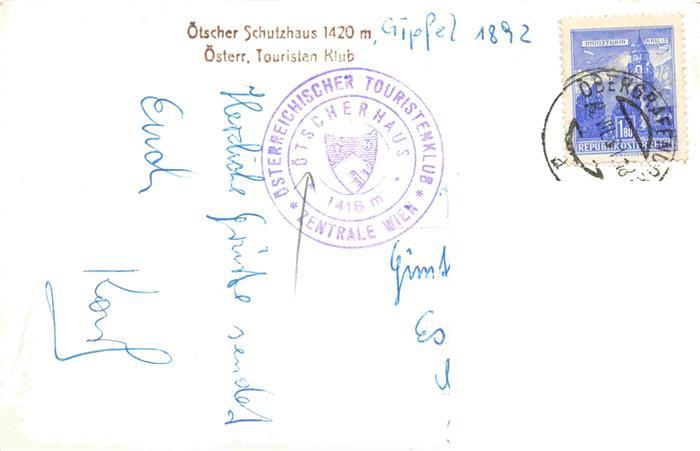 Ötscher Schutzhaus 1420 m, Gipfel 1892
Österr. Touristen Klub
ÖSTERREICHISCHER TOURISTENKLUB
ÖTSCHERHAUS
1418 m
* ZENTRALE WIEN *
MÜNZTURM HALL i. T.
1.80
REPUBLIK ÖSTERREICH
OBERGRAFEND
Herzliche Grüße sendet
Euch
Karl
Günt
Es